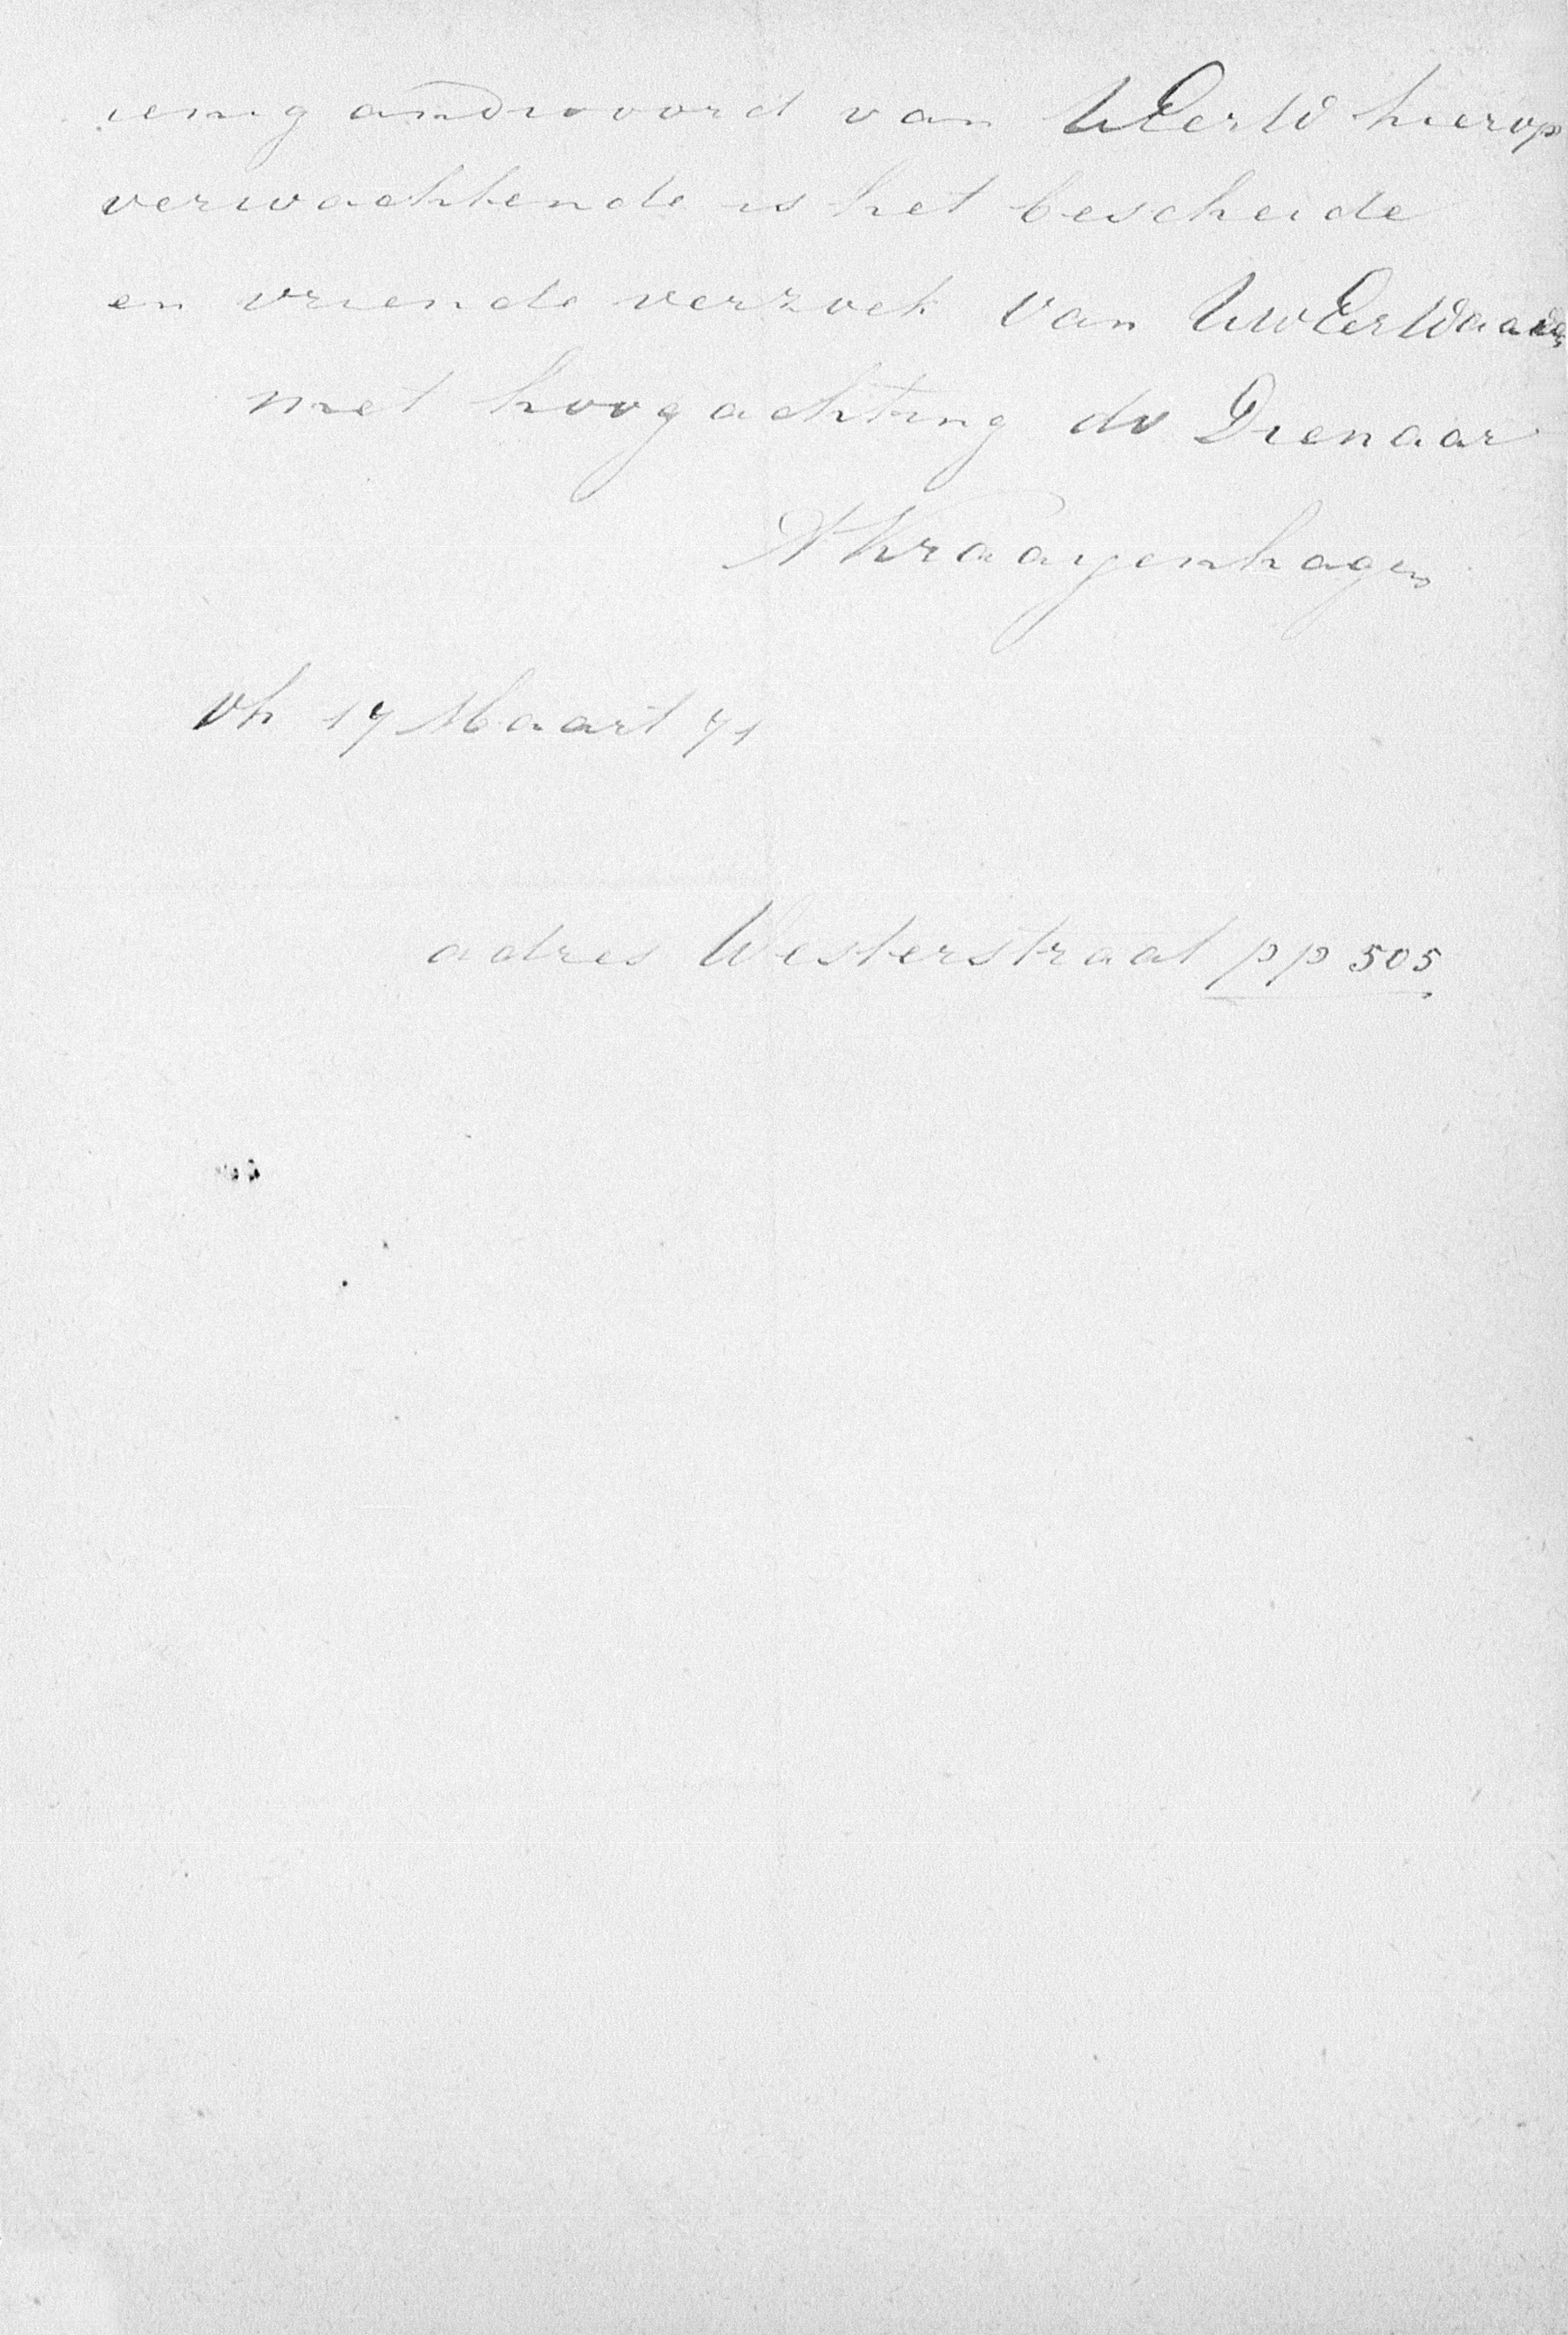 ienig andwoord van UEerW hierop
verwachtende is het bescheide
en vriende verzoek van UwEerWaarde
met hoogachting dv Dienaar
A Kraayenhagen
Vh 17 Maart 71
adres Westerstraat pp 505